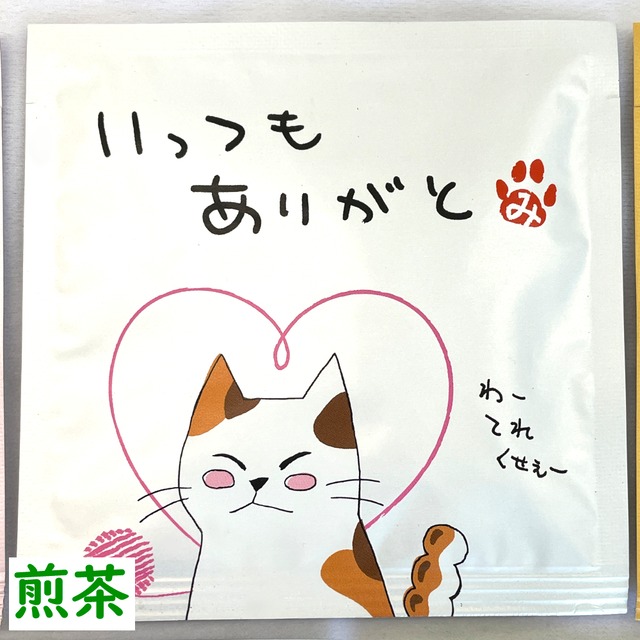 いっつも
ありがと
み
わー
てれ
くせぇー
煎茶